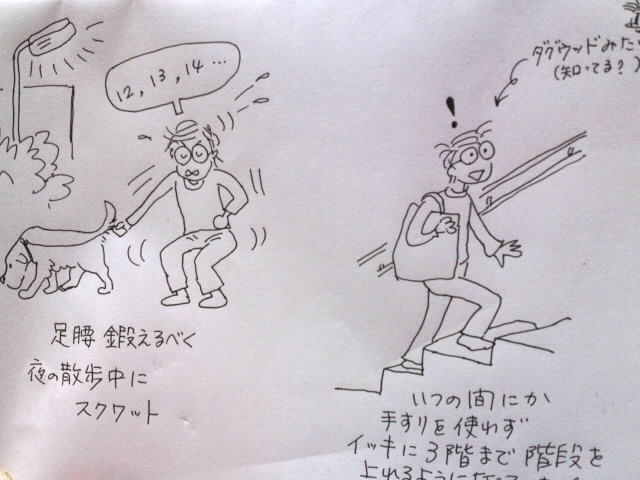 12, 13, 14 …
足腰 鍛えるべく
夜の散歩中に
スクワット
ダグウッドみた
(知ってる?)
!
いつの間にか
手すりを使わず
イッキに3階まで階段を
上れるようになって